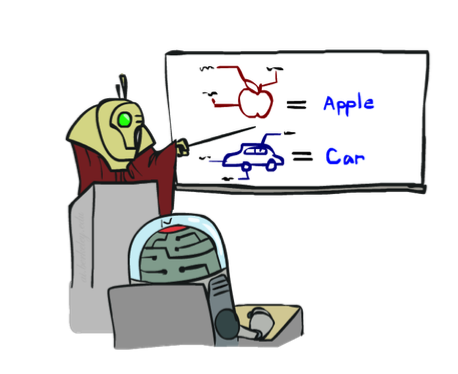 = Apple
= Car